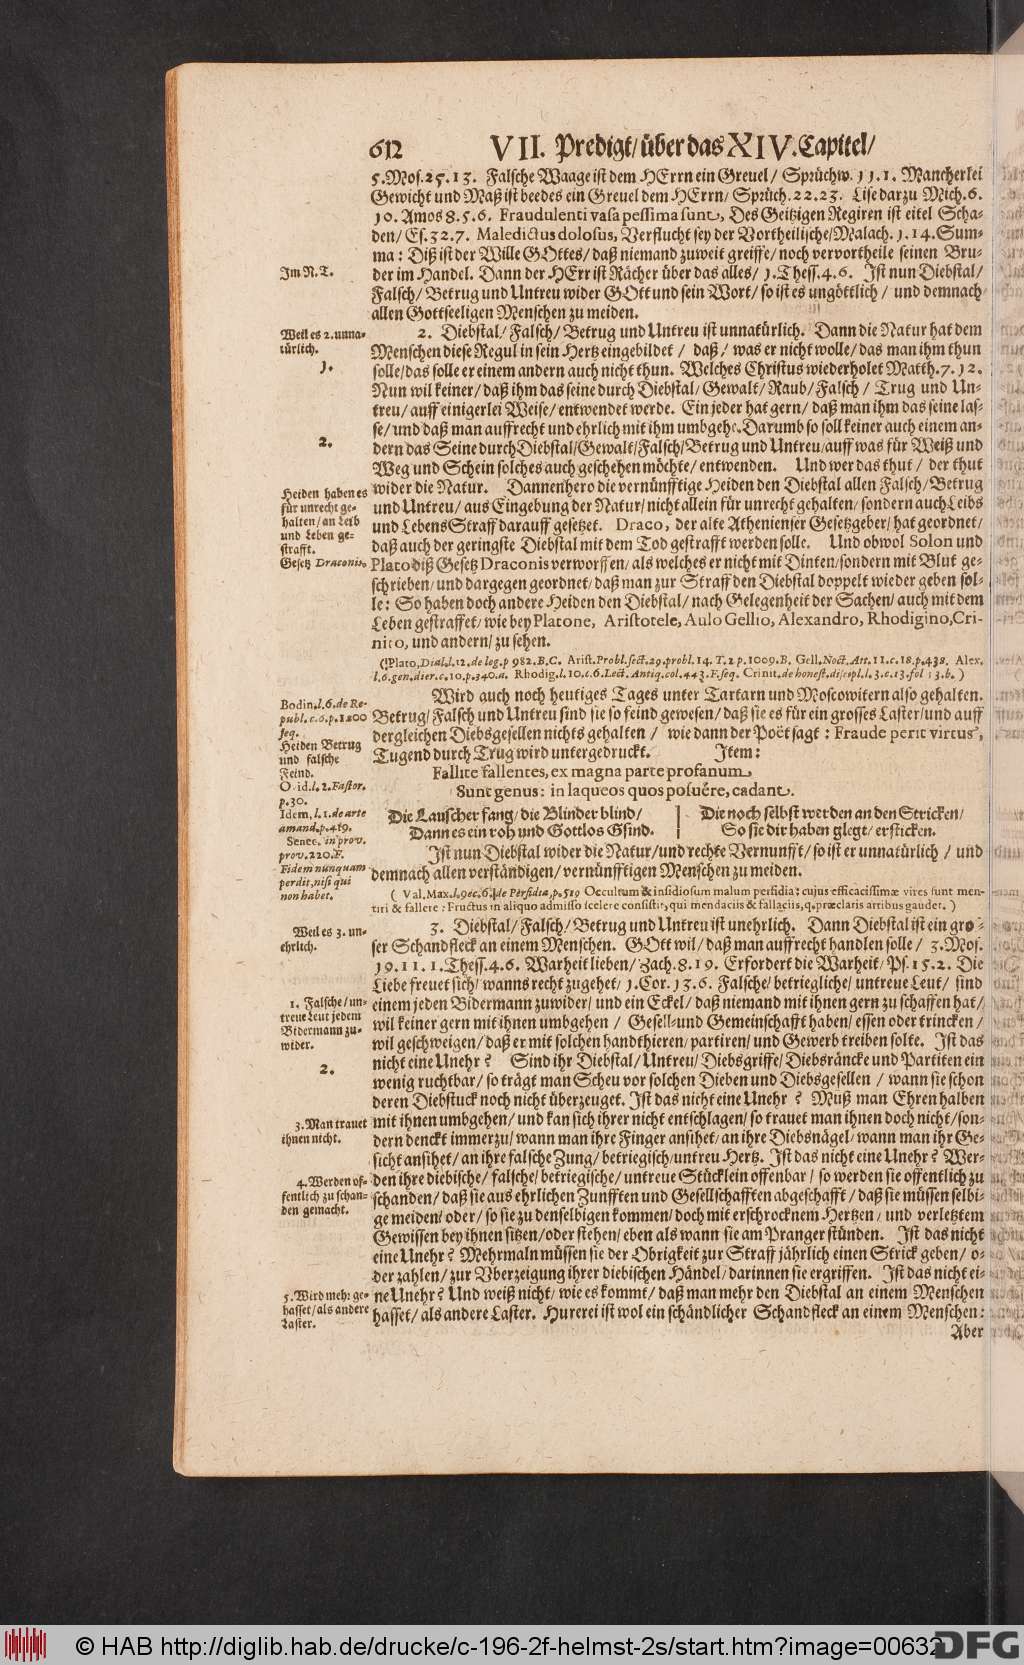 612 VII. Predigt/ über das XIV. Capitel/
5. Mos. 25. 13. Falsche Waage ist dem HErrn ein Greuel/ Sprüchw. 11. 1. Mancherlei
Gewicht und Maß ist beedes ein Greuel dem HErrn/ Sprüch. 22. 23. Lise darzu Mich. 6.
10. Amos 8. 5. 6. Fraudulenti vasa pessima sunt, Des Geitzigen Regiren ist eitel Scha-
den/ Es. 32. 7. Maledictus dolosus, Verflucht sey der Vortheilische/ Malach. 1. 14. Sum-
ma: Diß ist der Wille GOttes/ daß niemand zuweit greiffe/ noch vervortheile seinen Bru-
Im N. T.
der im Handel. Dann der HErr ist Rächer über das alles/ 1. Thess. 4. 6. Ist nun Diebstal/
Falsch/ Betrug und Untreu wider GOtt und sein Wort/ so ist es ungöttlich/ und demnach
allen Gottseeligen Menschen zu meiden.
Weil es 2. unna-
türlich.
2. Diebstal/ Falsch/ Betrug und Untreu ist unnatürlich. Dann die Natur hat dem
Menschen diese Regul in sein Hertz eingebildet/ daß/ was er nicht wolle/ das man ihm thun
1.
solle/ das solle er einem andern auch nicht thun. Welches Christus wiederholet Matth. 7. 12.
Nun wil keiner/ daß ihm das seine durch Diebstal/ Gewalt/ Raub/ Falsch/ Trug und Un-
treu/ auff einigerlei Weise/ entwendet werde. Ein jeder hat gern/ daß man ihm das seine las-
se/ und daß man auffrecht und ehrlich mit ihm umbgehe. Darumb so soll keiner auch einem an-
2.
dern das Seine durch Diebstal/ Gewalt/ Falsch/ Betrug und Untreu/ auff was für Weiß und
Weg und Schein solches auch geschehen möchte/ entwenden. Und wer das thut/ der thut
Heiden haben es
für unrecht ge-
halten/ an Leib
und Leben ge-
strafft.
Gesetz Draconis.
wider die Natur. Dannenhero die vernünfftige Heiden den Diebstal allen Falsch/ Betrug
und Untreu/ aus Eingebung der Natur/ nicht allein für unrecht gehalten/ sondern auch Leibs
und Lebens Straff darauff gesetzet. Draco, der alte Athenienser Gesetzgeber/ hat geordnet/
daß auch der geringste Diebstal mit dem Tod gestrafft werden solle. Und obwol Solon und
Plato diß Gesetz Draconis verworffen/ als welches er nicht mit Dinten/ sondern mit Blut ge-
schrieben/ und dargegen geordnet/ daß man zur Straff den Diebstal doppelt wieder geben sol-
le: So haben doch andere Heiden den Diebstal/ nach Gelegenheit der Sachen/ auch mit dem
Leben gestraffet/ wie bey Platone, Aristotele, Aulo Gellio, Alexandro, Rhodigino, Cri-
nito, und andern/ zu sehen.
(Plato, Dial. l. 12. de leg. p 982. B. C. Arist. Probl. sect. 29. probl. 14. T. 2 p. 1009. B. Gell. Noct. Att. 11. c. 18. p. 438. Alex.
l. 6. gen. dier. c. 10. p. 340. a. Rhodig. l. 10. c. 6. Lect. Antiq. col. 443. F. seq. Crinit. de honest. discipl. l. 3. c. 13. fol 13. b.)
Bodin. l. 6. de Re-
publ. c. 6. p. 1200
seq.
Heiden Betrug
und falsche
Feind.
Ovid. l. 2. Fastor.
p. 30.
Idem, l. 1. de arte
amand. p. 419.
Senec. in prov.
prov. 220. F.
Fidem nunquam
perdit, nisi qui
non habet.
Wird auch noch heutiges Tages unter Tartarn und Moscowitern also gehalten.
Betrug/ Falsch und Untreu sind sie so feind gewesen/ daß sie es für ein grosses Laster/ und auff
dergleichen Diebsgesellen nichts gehalten/ wie dann der Poët sagt: Fraude perit virtus,
Tugend durch Trug wird untergedruckt. Item:
Fallite fallentes, ex magna parte profanum
Sunt genus: in laqueos quos posuêre, cadant.
Die Lauscher fang/ die Blinder blind/
Dann es ein roh und Gottlos Gsind.
Die noch selbst werden an den Stricken/
So sie dir haben glegt/ ersticken.
Ist nun Diebstal wider die Natur/ und rechte Vernunfft/ so ist er unnatürlich/ und
demnach allen verständigen/ vernünfftigen Menschen zu meiden.
(Val. Max. l. 9 ec. 6. de Perfidia, p. 519 Occultum & insidiosum malum perfidia; cujus efficacissimæ vires sunt men-
tiri & fallere: Fructus in aliquo admisso scelere consistit, qui mendaciis & fallaciis, q. præclaris artibus gaudet.)
Weil es 3. un-
ehrlich.
3. Diebstal/ Falsch/ Betrug und Untreu ist unehrlich. Dann Diebstal ist ein gro-
ser Schandfleck an einem Menschen. GOtt wil/ daß man auffrecht handlen solle/ 3. Mos.
19. 11. 1. Thess. 4. 6. Warheit lieben/ Zach. 8. 19. Erfordert die Warheit/ Ps. 15. 2. Die
Liebe freuet sich/ wanns recht zugehet/ 1. Cor. 13. 6. Falsche/ betriegliche/ untreue Leut/ sind
1. Falsche/ un-
treue Leut jedem
Bidermann zu-
wider.
einem jeden Bidermann zuwider/ und ein Eckel/ daß niemand mit ihnen gern zu schaffen hat/
wil keiner gern mit ihnen umbgehen/ Gesell- und Gemeinschafft haben/ essen oder trincken/
wil geschweigen/ daß er mit solchen handthieren/ partiren/ und Gewerb treiben solte. Ist das
nicht eine Unehr? Sind ihr Diebstal/ Untreu/ Diebsgriffe/ Diebsräncke und Partiten ein
2.
wenig ruchtbar/ so trägt man Scheu vor solchen Dieben und Diebsgesellen/ wann sie schon
deren Diebstuck noch nicht überzeuget. Ist das nicht eine Unehr? Muß man Ehren halben
3. Man trauet
ihnen nicht.
mit ihnen umbgehen/ und kan sich ihrer nicht entschlagen/ so trauet man ihnen doch nicht/ son-
dern denckt immerzu/ wann man ihre Finger ansihet/ an ihre Diebsnägel/ wann man ihr Ge-
sicht ansihet/ an ihre falsche Zung/ betriegisch/ untreu Hertz. Ist das nicht eine Unehr? Wer-
4. Werden of-
fentlich zu schan-
den gemacht.
den ihre diebische/ falsche/ betriegische/ untreue Stücklein offenbar/ so werden sie offentlich zu
schanden/ daß sie aus ehrlichen Zunfften und Gesellschafften abgeschafft/ daß sie müssen selbi-
ge meiden/ oder/ so sie zu denselbigen kommen/ doch mit erschrocknem Hertzen/ und verletztem
Gewissen bey ihnen sitzen/ oder stehen/ eben als wann sie am Pranger stünden. Ist das nicht
eine Unehr? Mehrmaln müssen sie der Obrigkeit zur Straff jährlich einen Strick geben/ o-
der zahlen/ zur Vberzeigung ihrer diebischen Händel/ darinnen sie ergriffen. Ist das nicht ei-
5. Wird mehr ge-
hasset/ als andere
Laster.
ne Unehr? Und weiß nicht/ wie es kommt/ daß man mehr den Diebstal an einem Menschen
hasset/ als andere Laster. Hurerei ist wol ein schändlicher Schandfleck an einem Menschen:
Aber
© HAB http://diglib.hab.de/drucke/c-196-2f-helmst-2s/start.htm?image=00632
DFG